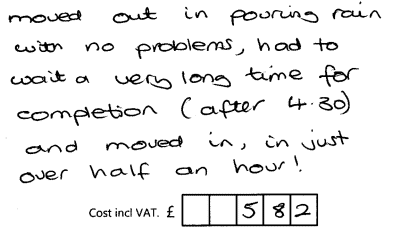 moved out in pouring rain
with no problems, had to
wait a very long time for
completion (after 4.30)
and moved in, in just
over half an hour!
Cost incl VAT. £ 582